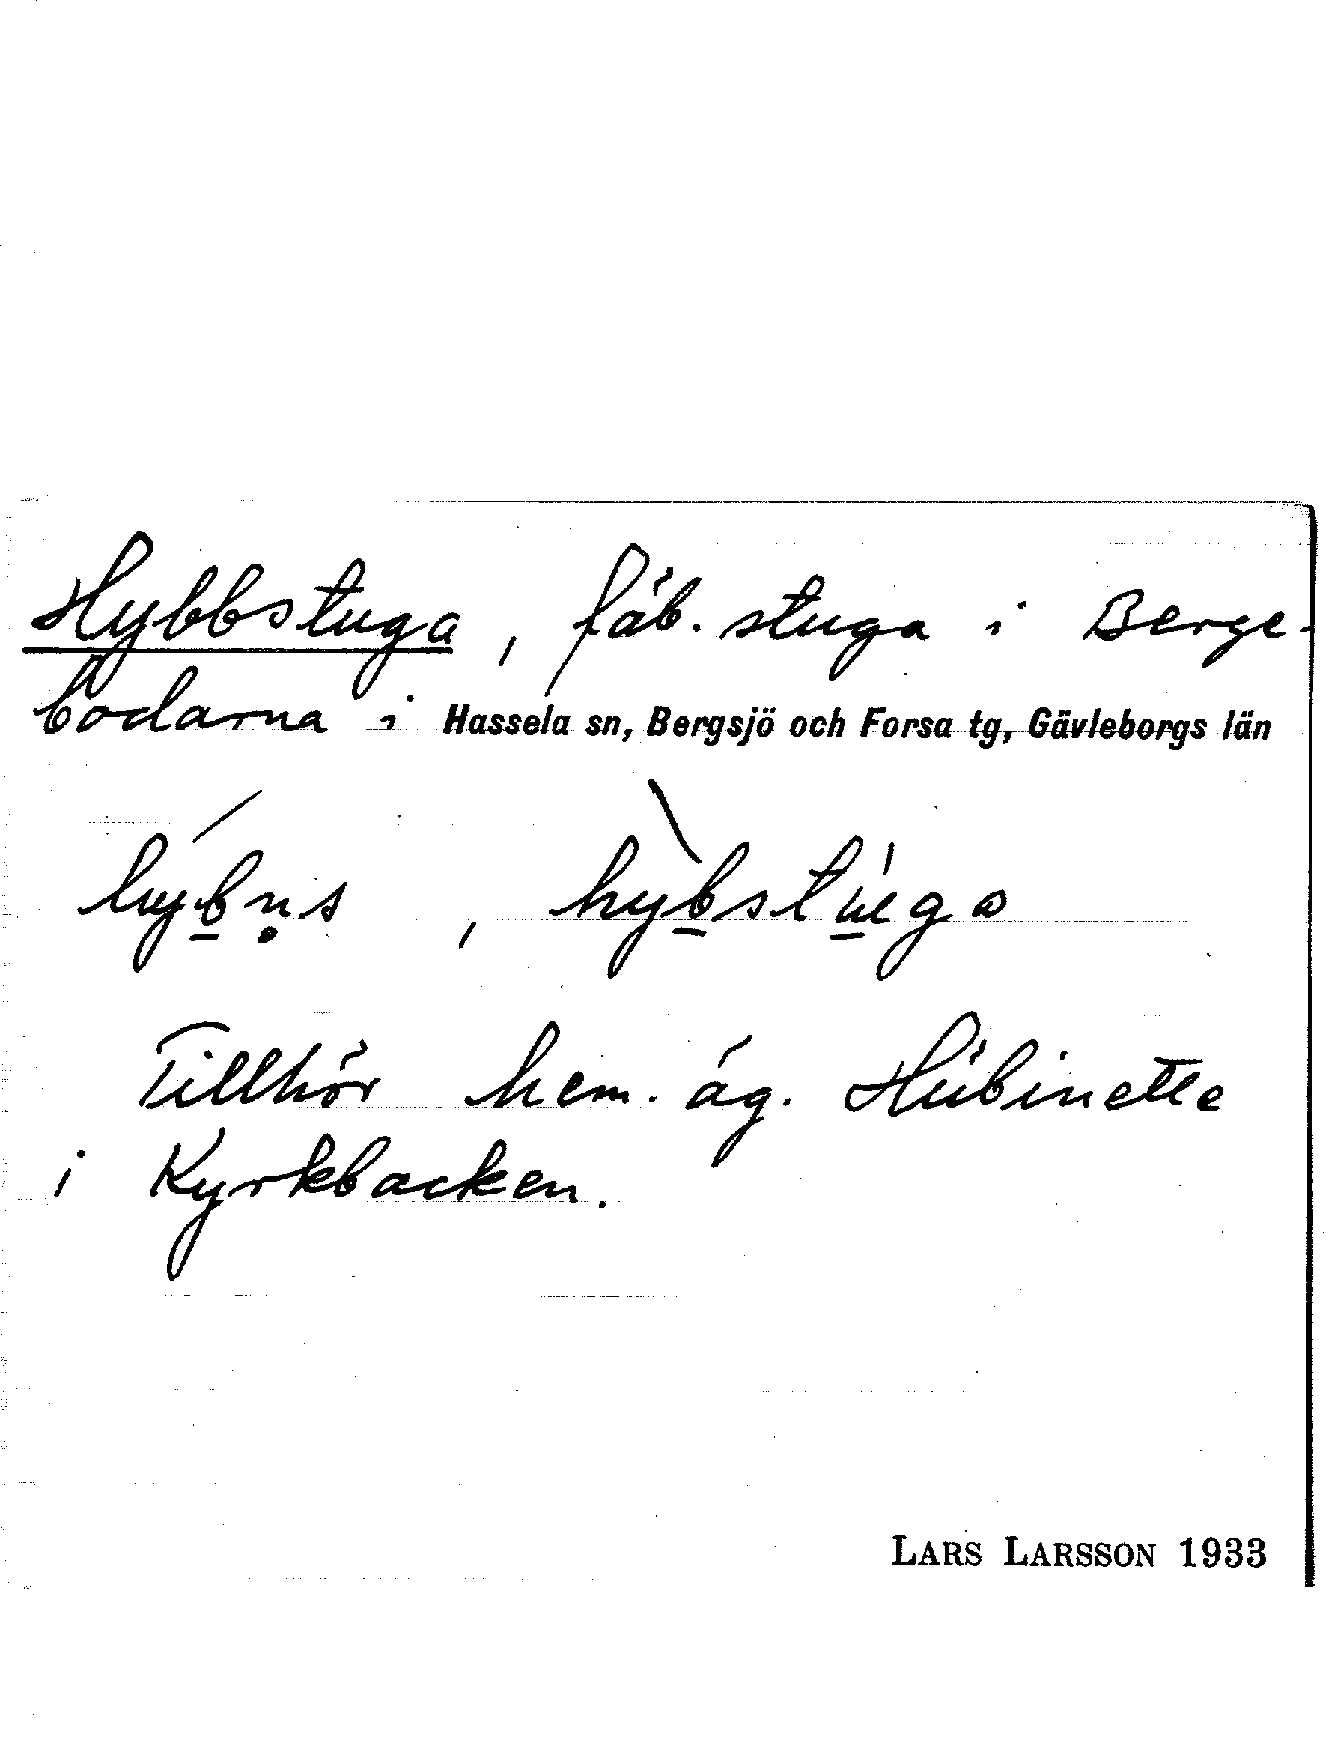 Hybbstuga, fäb. stuga i Berge-
bodarna i Hassela sn, Bergsjö och Forsa tg, Gävleborgs län
hybn̥s, hybstuga
Tillhör hem. äg. Hübinette
i Kyrkbacken.
LARS LARSSON 1933